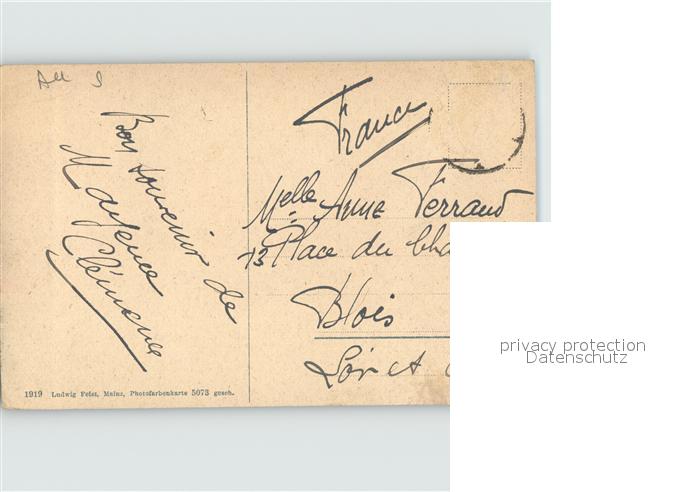 All 9
Bon souvenir de
Mayence
Clémence
France
Melle Anne Ferrand
13 Place du Cha
Blois
Loir et C
1919 Ludwig Feist, Mainz, Photofarbenkarte 5073 gesch.
privacy protection
Datenschutz